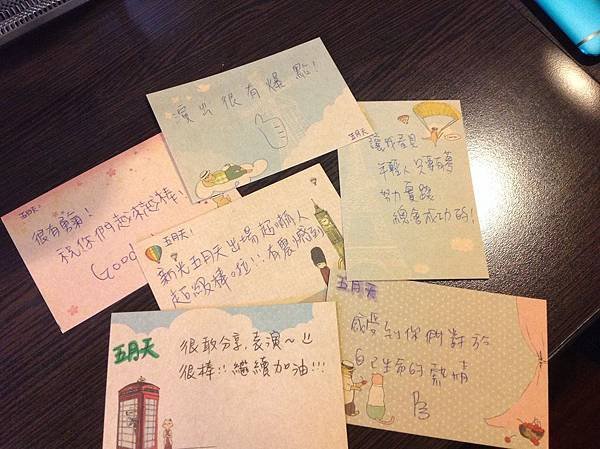 演出很有爆點!
五月天
五月天!
很有勇氣!
祝你們越來越棒!
Good
讓我看見
年輕人只要有夢
努力實踐
總會成功的!
五月天!
新光五月天出場超嚇人
超級棒啦!!有震撼到
五月天
很敢分享,表演~
很棒!!繼續加油!!!
五月天
感受到你們對於
自己生命的熱情